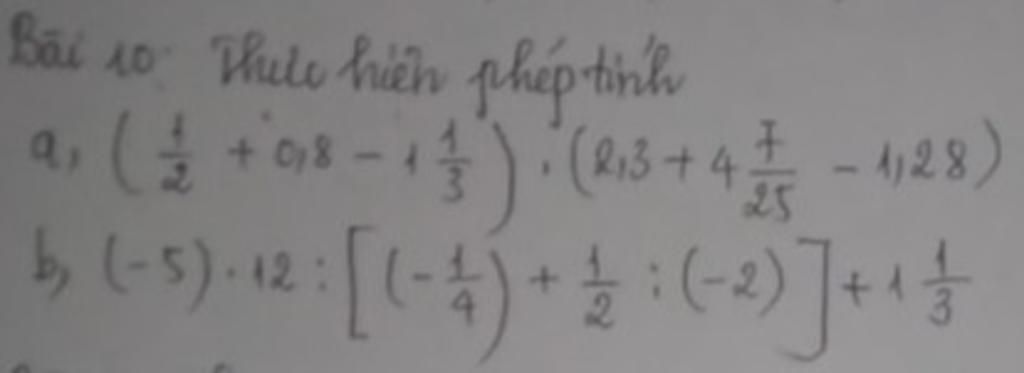 Bài 10: Thực hiện phép tính
a, (1/2 + 0,8 - 1 1/3) . (2,3 + 4 7/25 - 1,28)
b, (-5) . 12 : [(-1/4) + 1/2 : (-2)] + 1 1/3